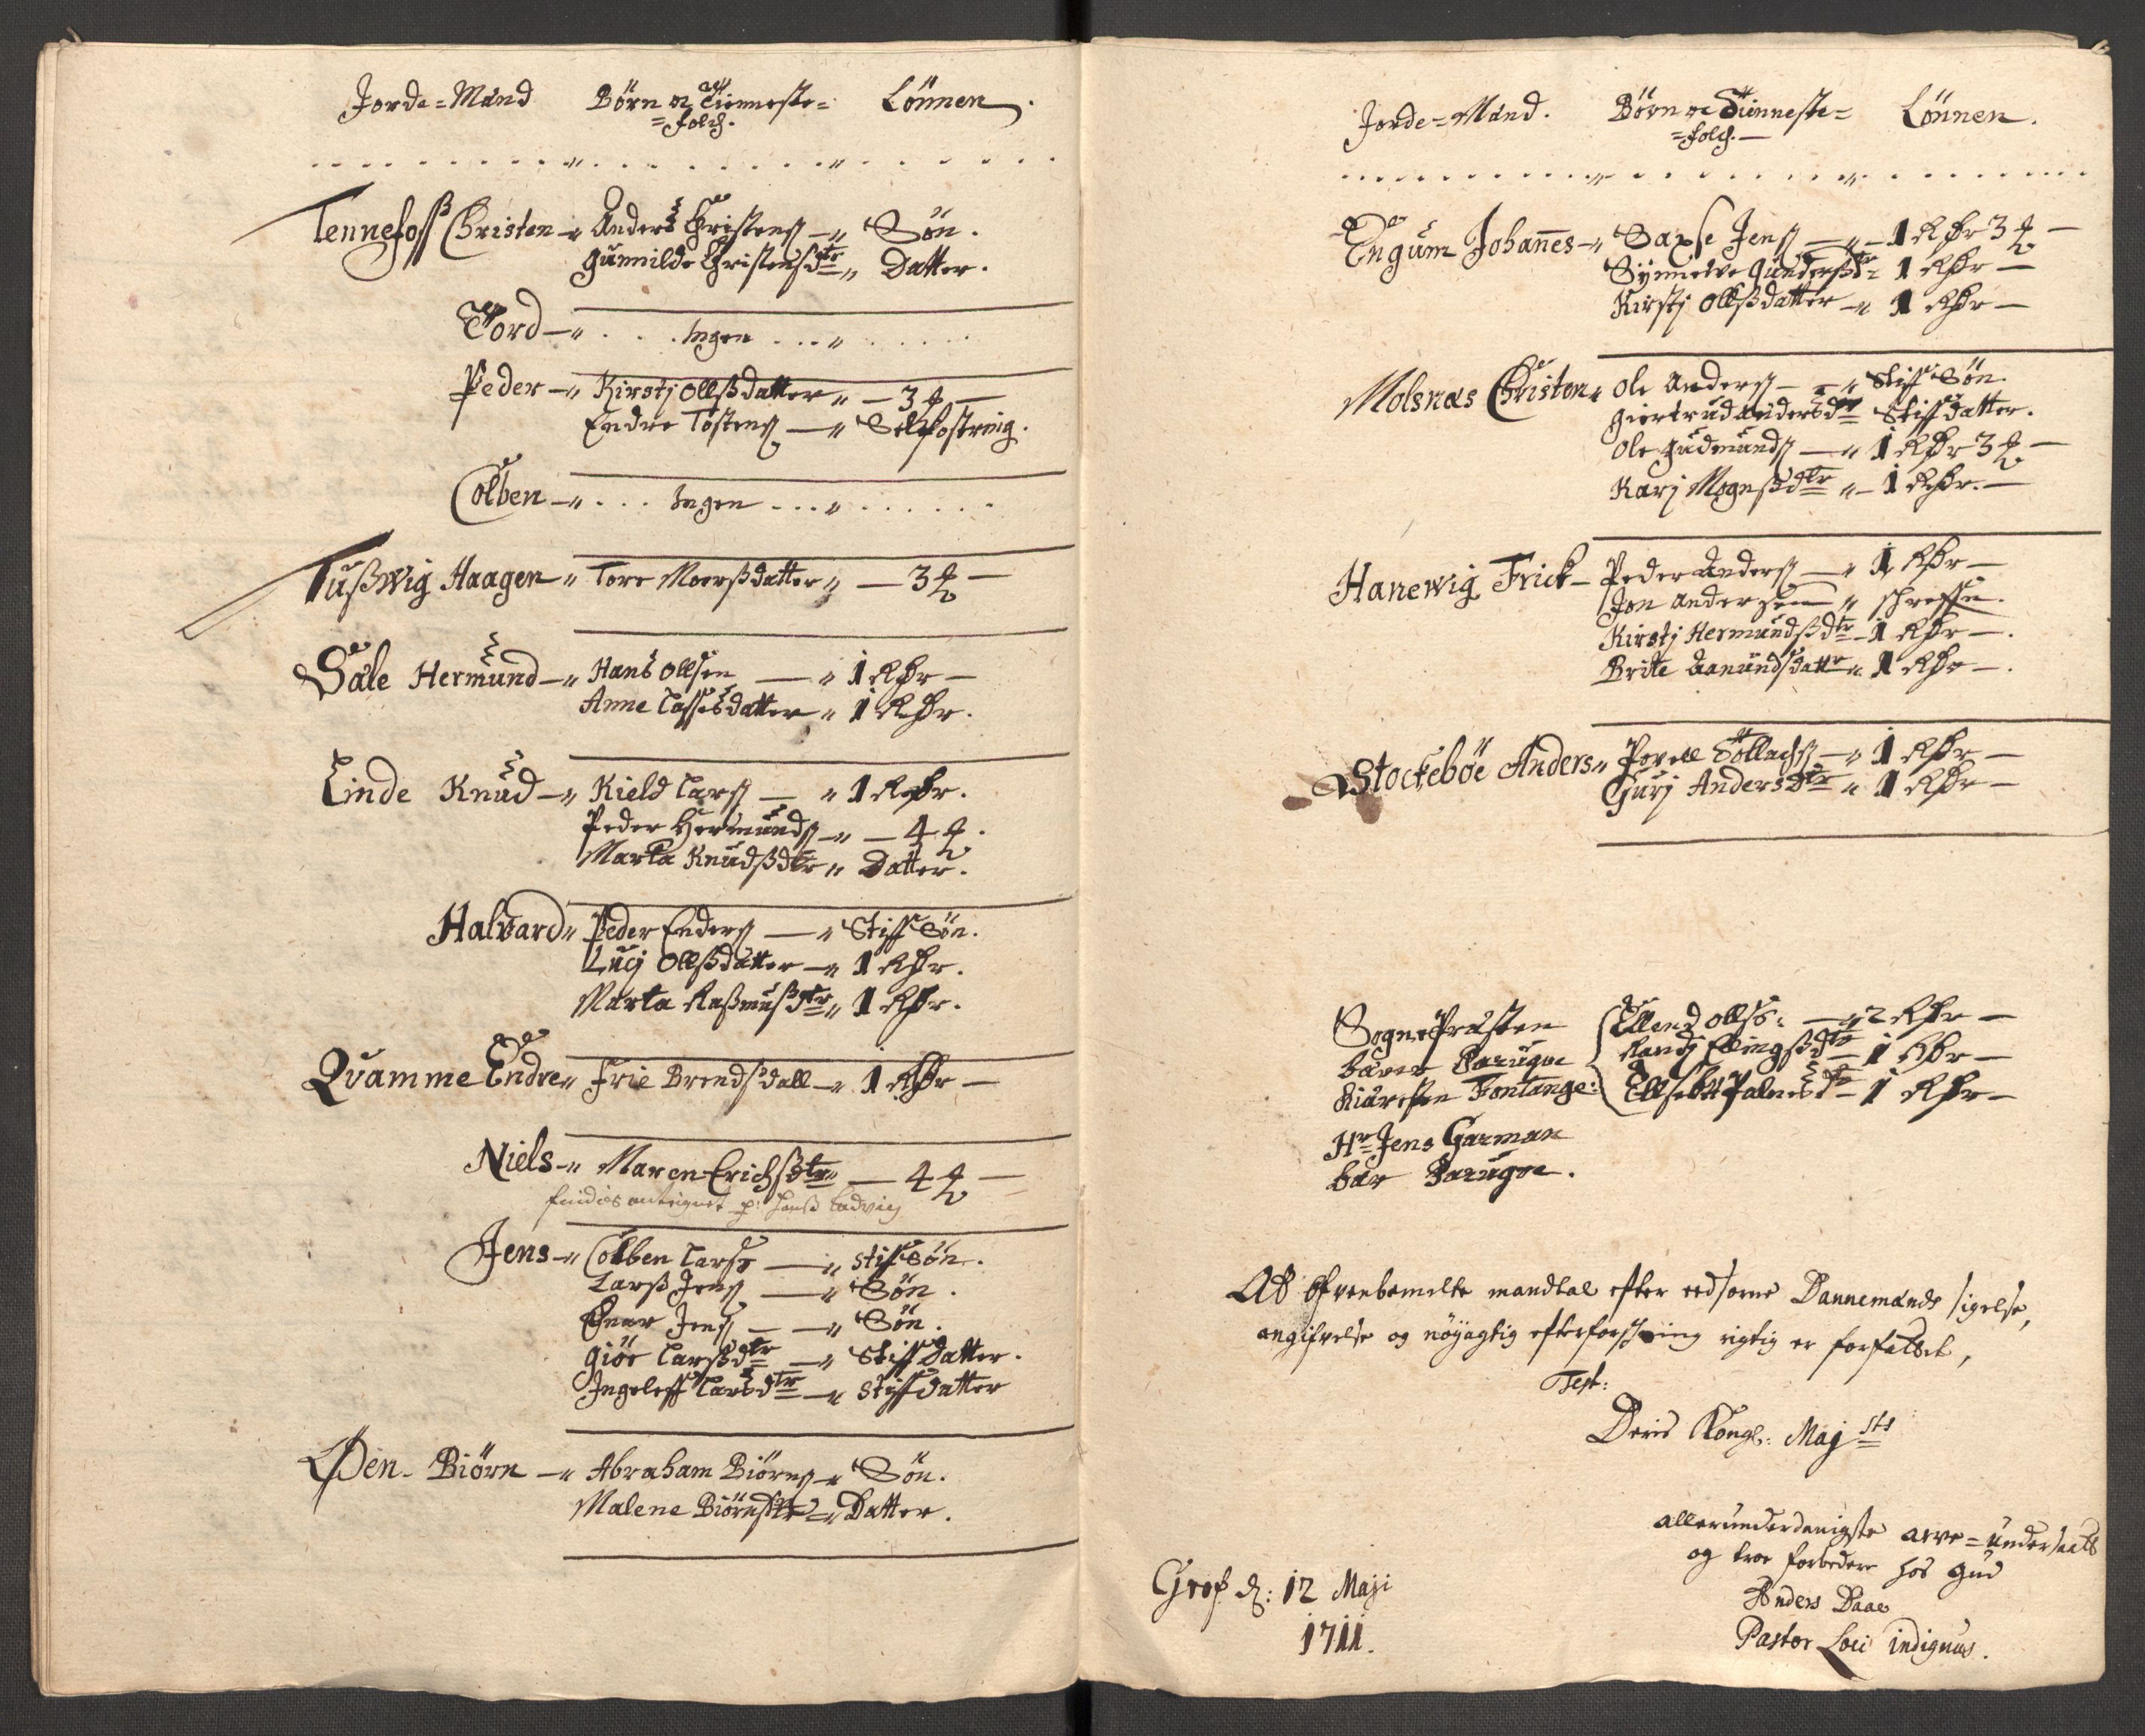 Jorde=Mænd Börn og Tienneste= Lönnen.
=folch.
Tennefoss Christen Anders Christens Sön.
Gunnilde Christensdtr Datter.
Tord Ingen
Peder Kirstj Ollsdatter 3
Endre Tostens Selfostring.
Colben Ingen
Tusswig Haagen Tore Moersdatter 3
Sale Hermund Hans Ollsen 1 Rdr
Anne Lasses datter 1 Rdr.
Linde Knud Kield Lars 1 Rdr.
Peder Hermunds 4
Marta Knudsdtr Datter.
Halvard Peder Enders Stiff Sön.
Lucj Ollsdatter 1 Rdr.
Marta Rasmusdtr 1 Rdr.
Qvamme Endre Frie Brendsdall 1 Rdr
Niels Maren Erichsdtr 4
Jens Colben Lars stiffsön.
Lars Jens Sön.
Jens Sön.
Giöe Larsdtr Stiff datter.
Ingeleff Larsdtr stiff datter
Öen Biörn Abraham Biörns Sön.
Malene Biörnsdtr Datter.
Jorde=Mænd. Börn og Tienneste= Lönnen.
=folch.
Engum Johannes Saxse Jens 1 Rdr 3
Synneve Gundersdtr 1 Rdr
Kirstj Ollsdatter 1 Rdr
Molsnæs Christen Ole Anders Stiff Sön.
Giertrud Andersdtr Stiff datter.
Ole Gudmunds 1 Rdr 3
Karj Mognsdtr 1 Rdr.
Hanewig Frick Peder Anders 1 Rdr
Jon Andersen
Kirstj Hermundsdtr 1 Rdr
Brite Aanunds datter 1 Rdr
Stockeböe Anders Povell Tollachs 1 Rdr
Gurj Andersdtr 1 Rdr
Sogne Præsten Ellend Ollss: 2 Rdr
bærer Parugve Randj Ellingsdtr 1 Rdr
Kiæresten Fontange: Ellsebet Palnesdtr 1 Rdr
Hr Jens Garman
bær Parugve.
At ofvenbemelte mandtal efter eedsorne Dannemænds sigelse,
angifvelse og nöyagtig efterforskning rigtig er forfattet,
Test:
Deris Kongl: Majsts
allerunderdanigste arve=undersaatt
og troe forbedere hos Gud
Anders Daae
Pastor Loci indignus.
Grof d: 12 Maji
1711.